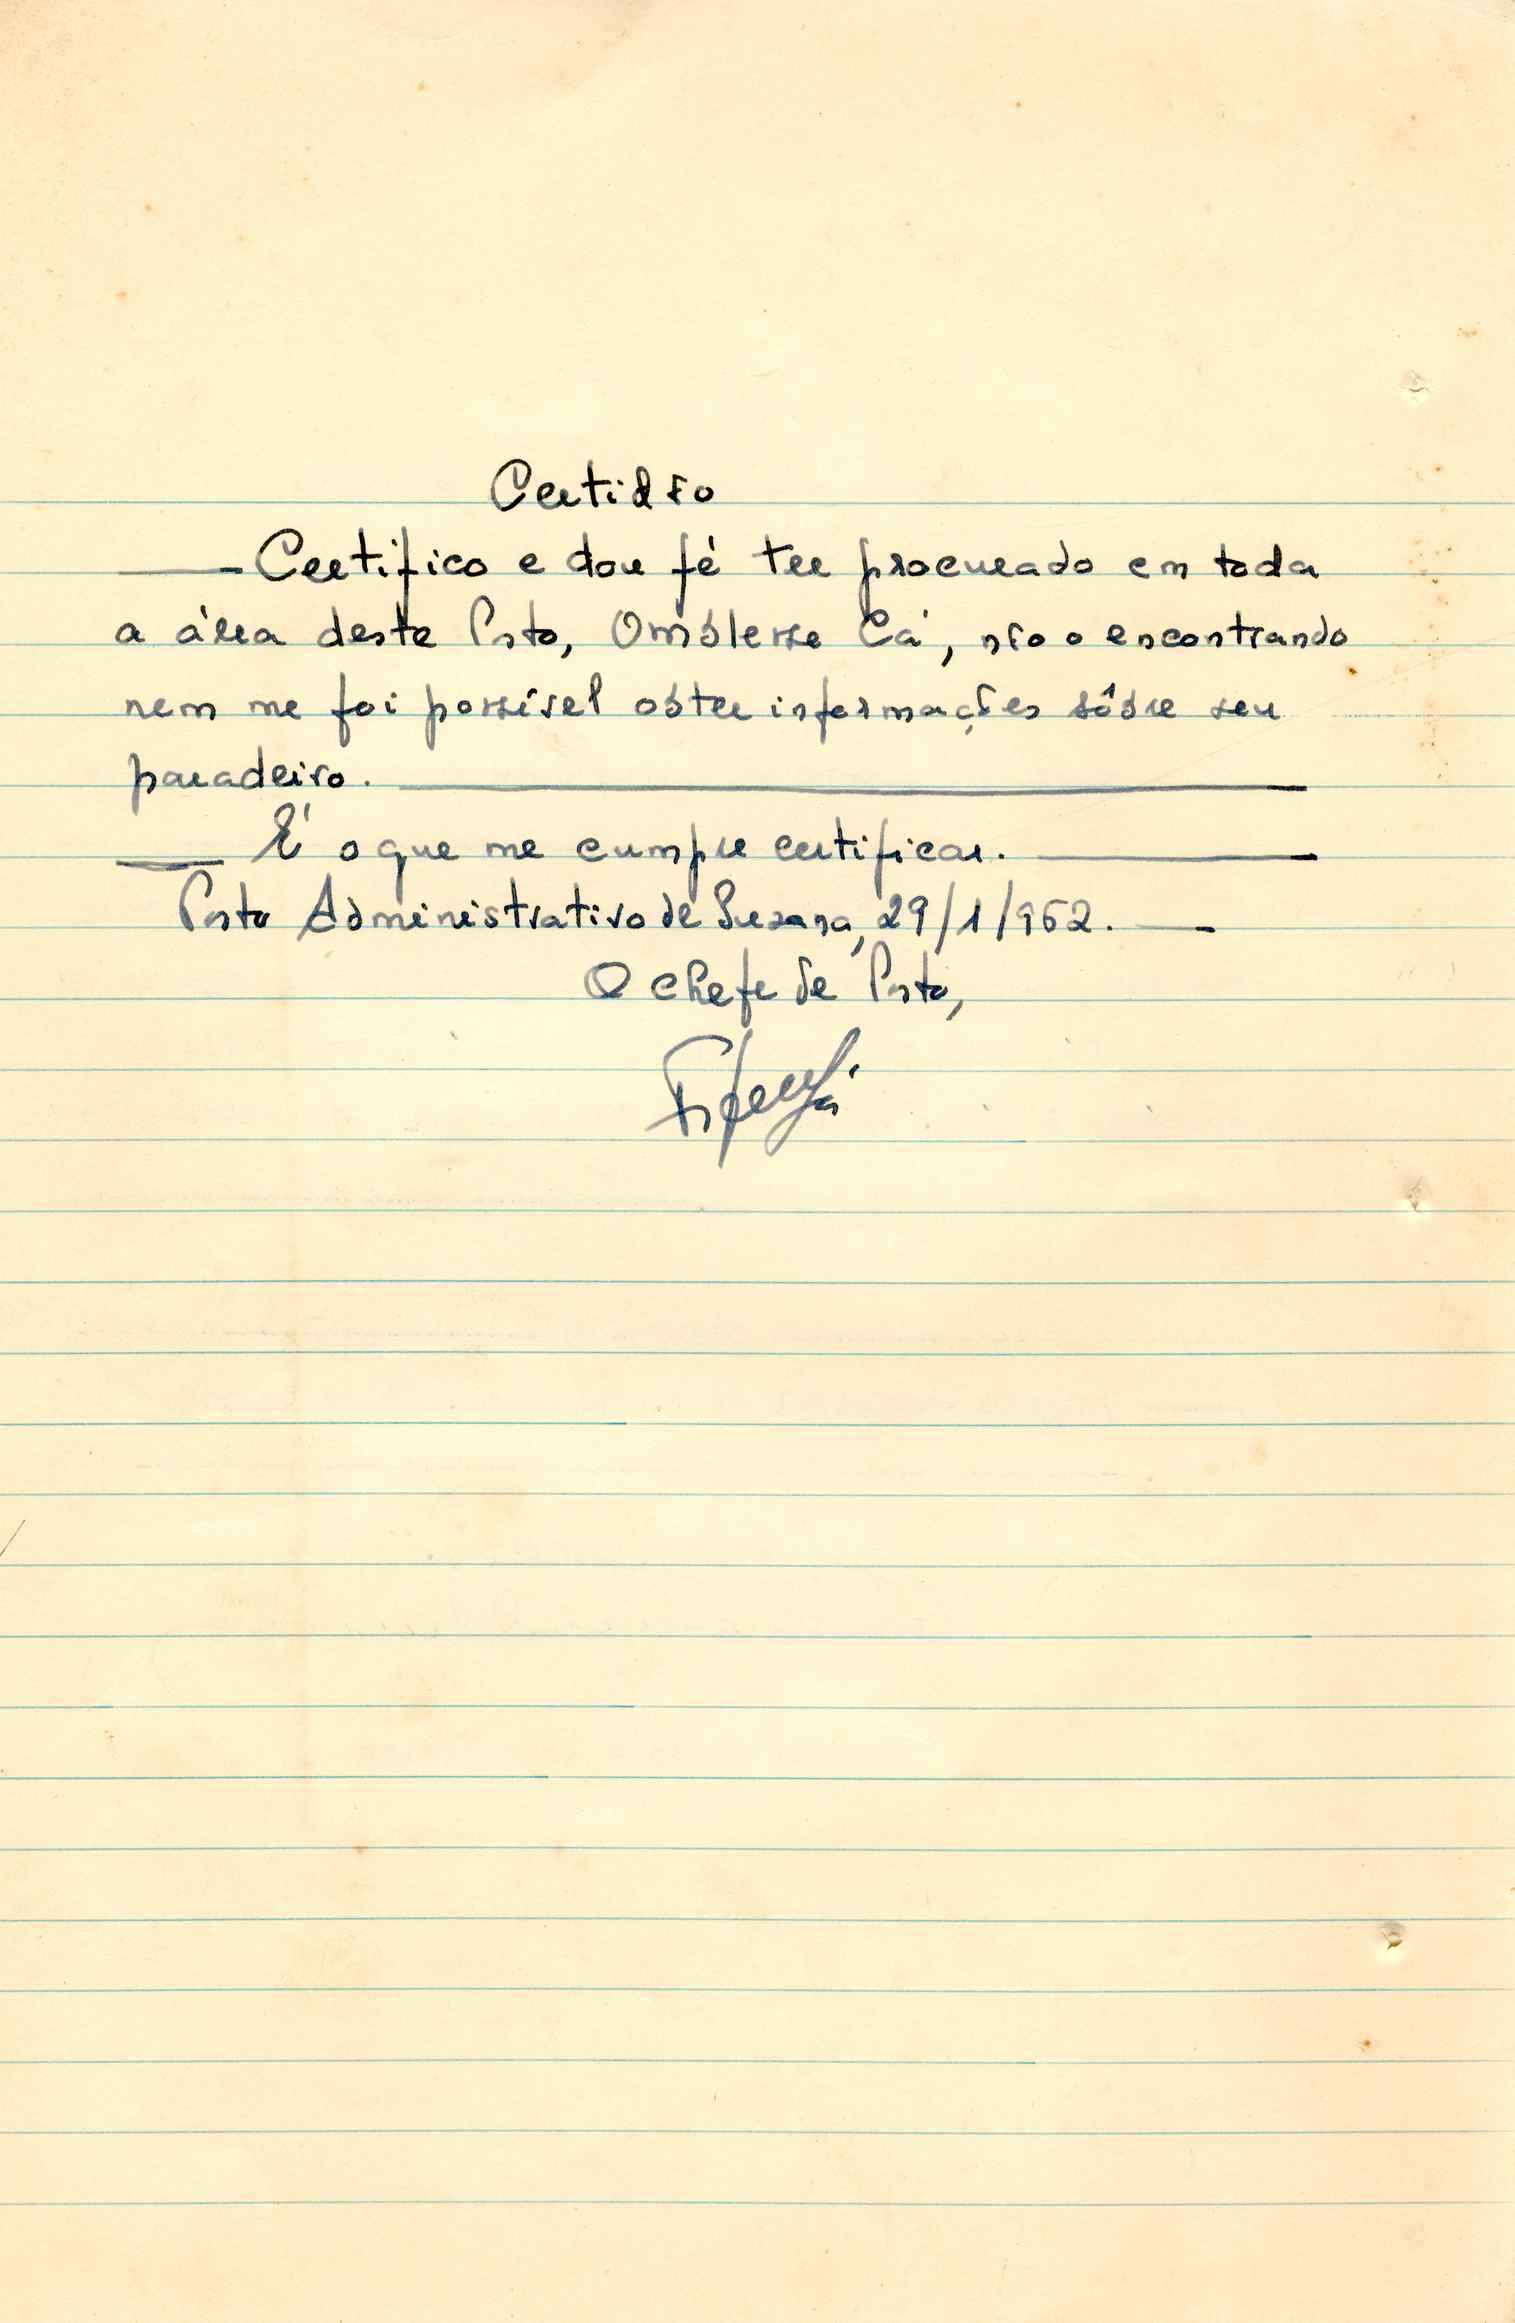 Certidão
Certifico e dou fé ter procurado em toda
a área deste Posto, Omblesse Cá, não o encontrando
nem me foi possível obter informações sôbre seu
paradeiro.
É o que me cumpre certificar.
Posto Administrativo de Suzana, 29/1/962.
O Chefe de Posto,